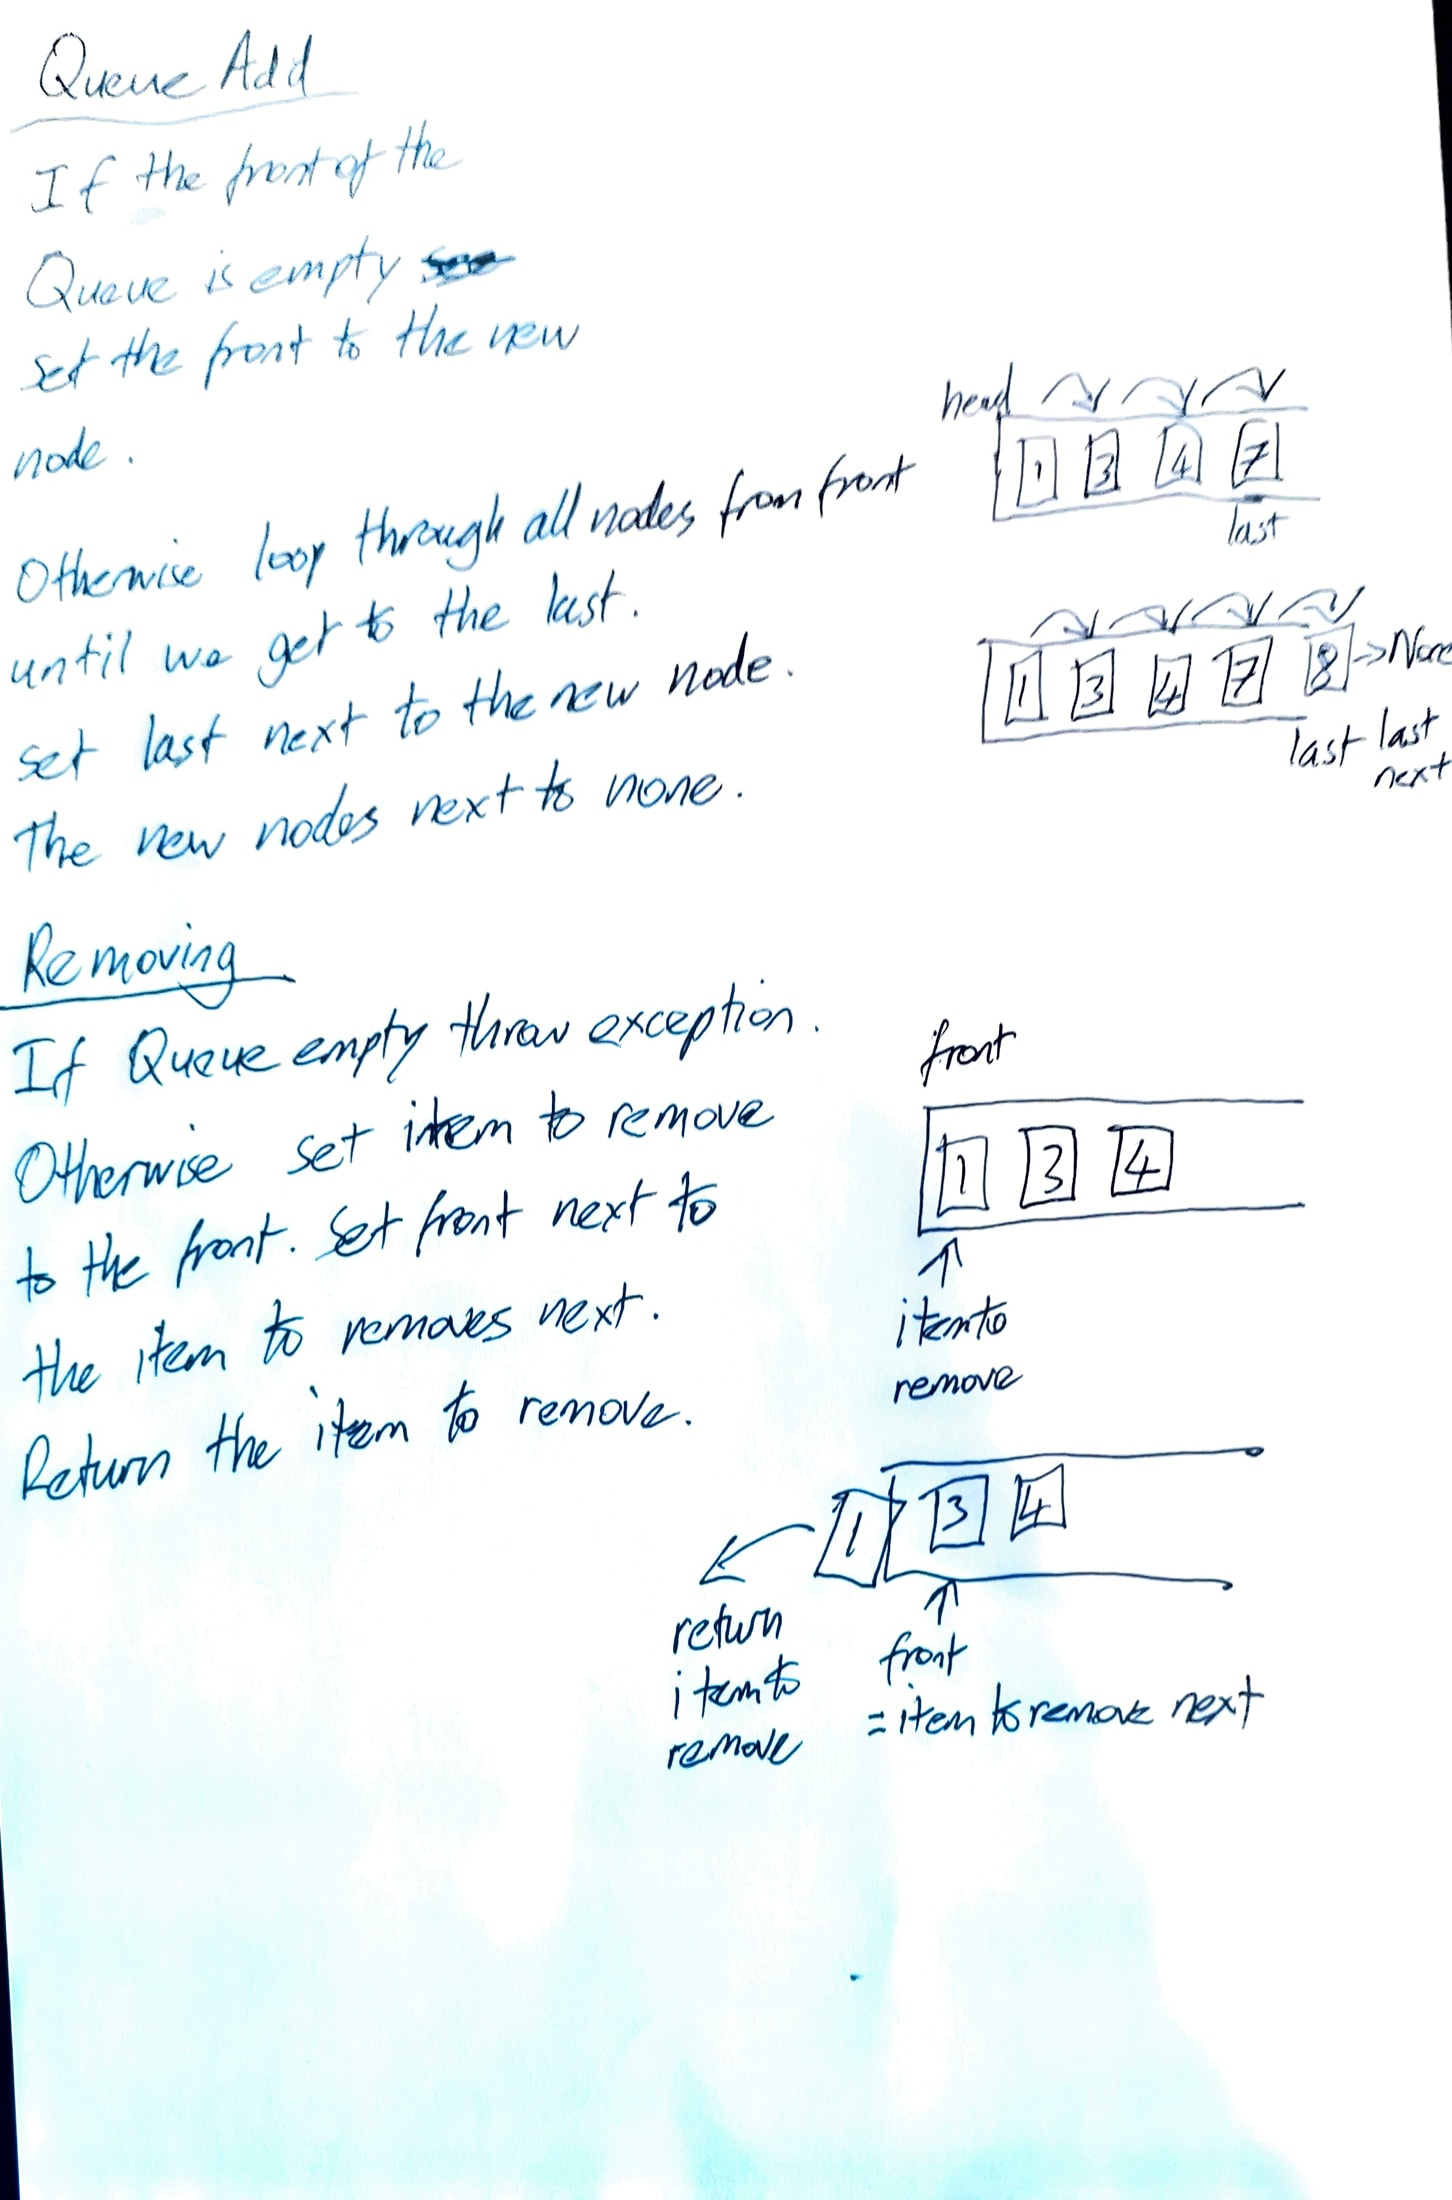 Queue Add
If the front of the
Queue is empty
set the front to the new
node.
Otherwise loop through all nodes from front
until we get to the last.
set last next to the new node.
The new nodes next to none.
head
1 3 4 7
last
1 3 4 7 8 -> None
last last
next
Removing
If Queue empty throw exception.
Otherwise set item to remove
to the front. Set front next to
the item to removes next.
Return the item to remove.
front
1 3 4
item to
remove
1 3 4
return
item to
remove
front
= item to remove next